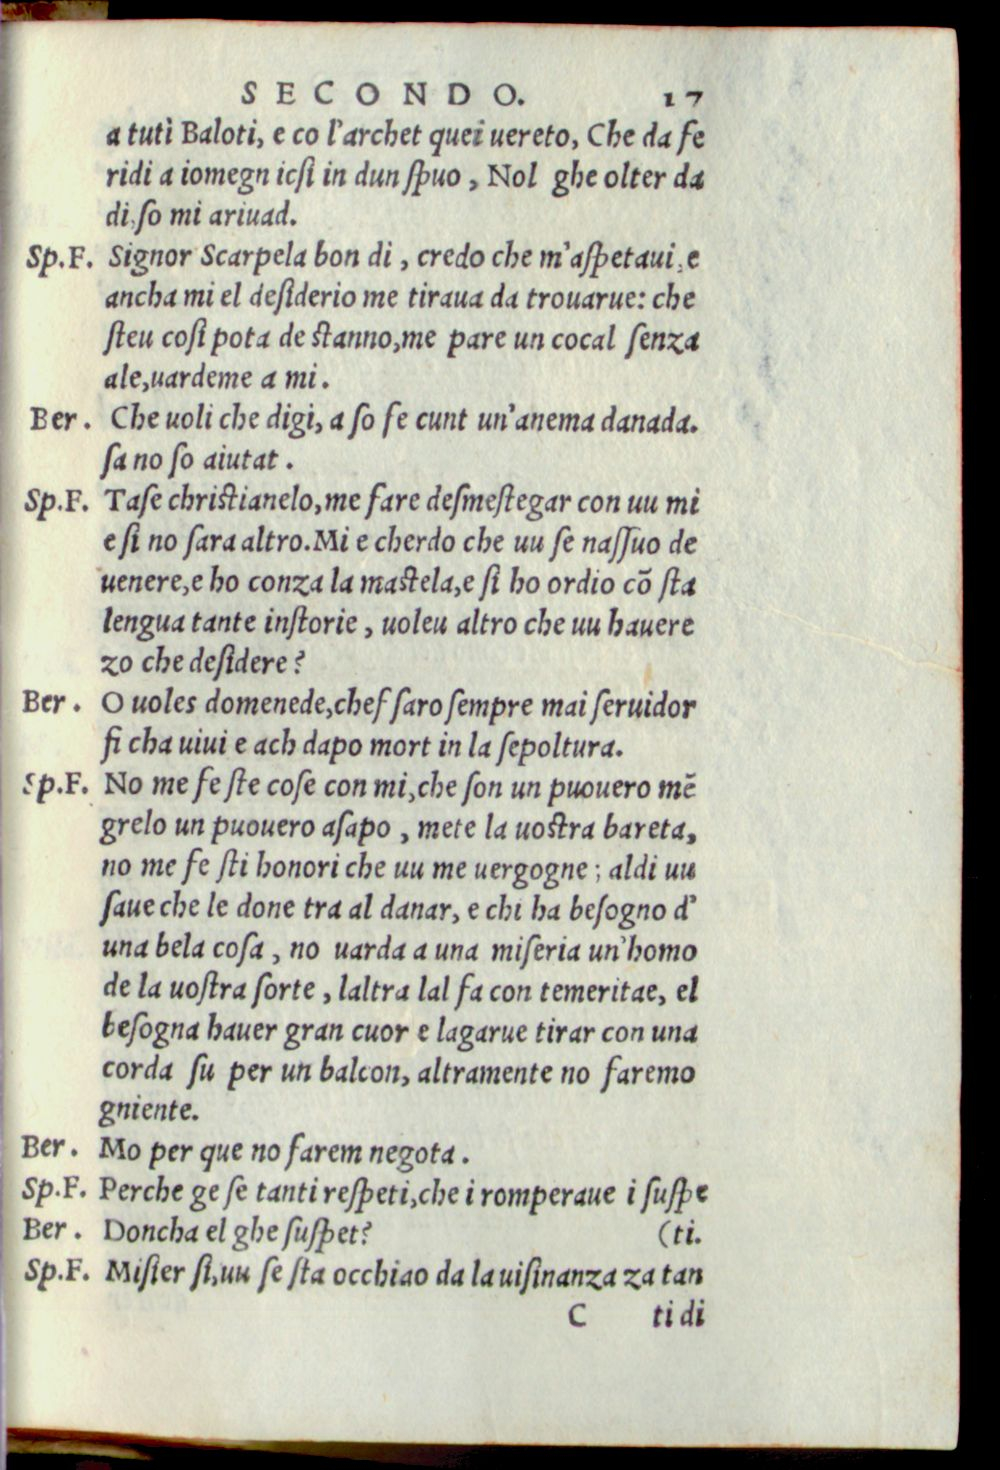 SECONDO. 17
a tutì Baloti, e co l'archet quei uereto, Che da fe
ridi a iomegn icſi in dun ſpuo, Nol ghe olter da
di, ſo mi ariuad.
Sp.F. Signor Scarpela bon di, credo che m'aſpetaui, e
ancha mi el deſiderio me tiraua da trouarue: che
ſteu coſi pota de ſtanno, me pare un cocal ſenza
ale, uardeme a mi.
Ber. Che uoli che digi, a ſo fe cunt un'anema danada.
ſa no ſo aiutat.
Sp.F. Taſe chriſtianelo, me fare deſmeſtegar con uu mi
e ſi no ſara altro. Mi e cherdo che uu ſe naſſuo de
uenere, e ho conza la maſtela, e ſi ho ordio cō ſta
lengua tante inſtorie, uoleu altro che uu hauere
zo che deſidere?
Ber. O uoles domenede, cheſ ſaro ſempre mai ſeruidor
fi cha uiui e ach dapo mort in la ſepoltura.
Sp.F. No me fe ſte coſe con mi, che ſon un puouero mē
grelo un puouero aſapo, mete la uoſtra bareta,
no me fe ſti honori che uu me uergogne; aldi uu
ſaue che le done tra al danar, e chi ha beſogno d'
una bela coſa, no uarda a una miſeria un'homo
de la uoſtra ſorte, laltra lal fa con temeritae, el
beſogna hauer gran cuor e lagarue tirar con una
corda ſu per un balcon, altramente no faremo
gniente.
Ber. Mo per que no farem negota.
Sp.F. Perche ge ſe tanti reſpeti, che i romperaue i ſuſpe
Ber. Doncha el ghe ſuſpet? (ti.
Sp.F. Miſier ſi, uu ſe ſta occhiao da la uiſinanza za tan
C ti di